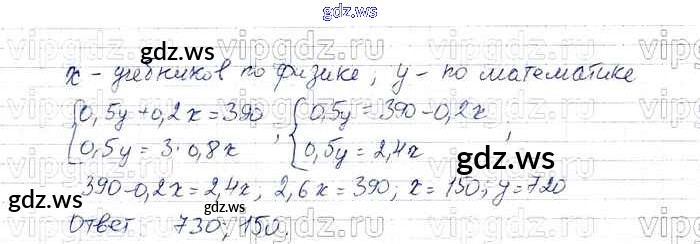 gdz.ws
gdz.ws
vipgdz.ru vipgdz.ru vipgdz.ru
x - учебников по физике, y - по математике
{0,5y+0,2x=390 {0,5y=390-0,2x
{0,5y=3·0,8x , {0,5y=2,4x ,
gdz.ws
390-0,2x=2,4x; 2,6x=390; x=150; y=720
gdz.ws
Ответ 730; 150.
gdz.ws
vipgdz.ru vipgdz.ru vipgdz.ru